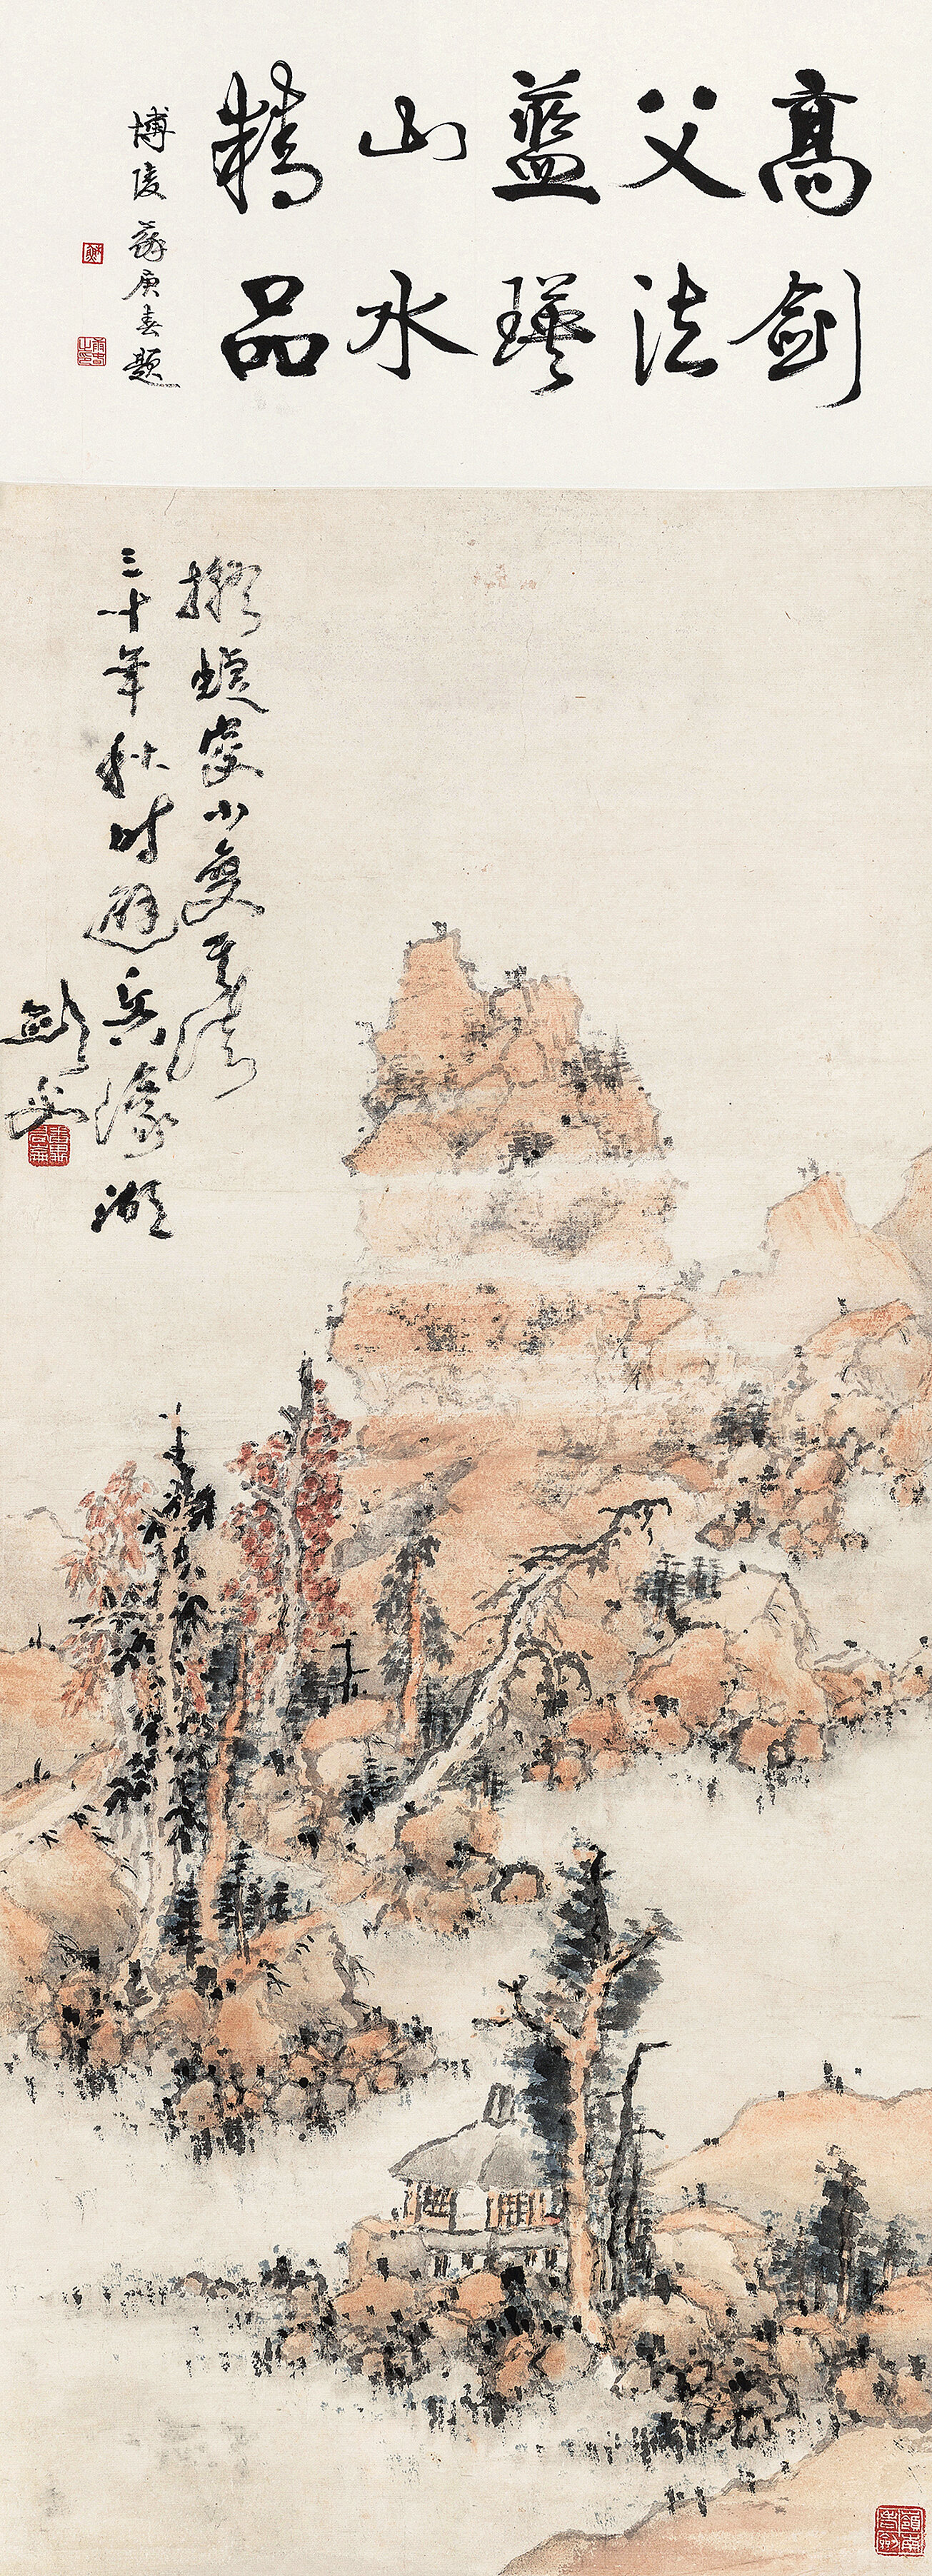 高劍
父法
藍瑛
山水
精品
博陵蘇庚春題
擬蝶叟小變其法
三十年秋時避兵濠湖
劍父